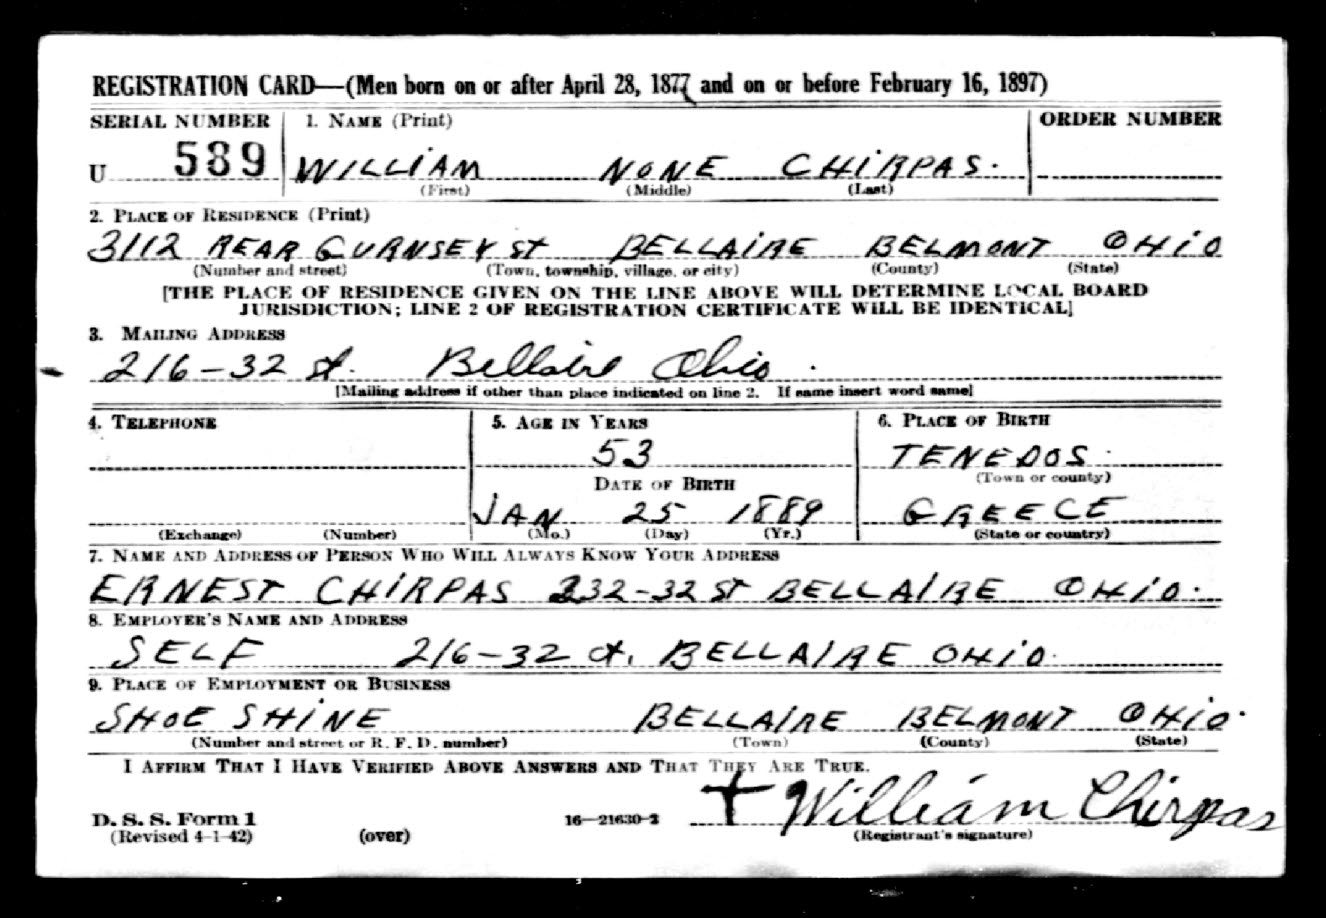 REGISTRATION CARD—(Men born on or after April 28, 1877 and on or before February 16, 1897)
SERIAL NUMBER 1. NAME (Print) ORDER NUMBER
U 589 WILLIAM NONE CHIRPAS.
(First) (Middle) (Last)
2. PLACE OF RESIDENCE (Print)
3112 REAR GURNSEY ST BELLAIRE BELMONT OHIO
(Number and street) (Town, township, village, or city) (County) (State)
[THE PLACE OF RESIDENCE GIVEN ON THE LINE ABOVE WILL DETERMINE LOCAL BOARD
JURISDICTION; LINE 2 OF REGISTRATION CERTIFICATE WILL BE IDENTICAL]
3. MAILING ADDRESS
216-32 St. Bellaire Ohio.
[Mailing address if other than place indicated on line 2. If same insert word same]
4. TELEPHONE 5. AGE IN YEARS 6. PLACE OF BIRTH
53 TENEDOS.
DATE OF BIRTH (Town or county)
JAN 25 1889 GREECE
(Exchange) (Number) (Mo.) (Day) (Yr.) (State or country)
7. NAME AND ADDRESS OF PERSON WHO WILL ALWAYS KNOW YOUR ADDRESS
ERNEST CHIRPAS 232-32 ST BELLAIRE OHIO.
8. EMPLOYER'S NAME AND ADDRESS
SELF 216-32 st. BELLAIRE OHIO.
9. PLACE OF EMPLOYMENT OR BUSINESS
SHOE SHINE BELLAIRE BELMONT OHIO.
(Number and street or R. F. D. number) (Town) (County) (State)
I AFFIRM THAT I HAVE VERIFIED ABOVE ANSWERS AND THAT THEY ARE TRUE.
D. S. S. Form 1 16—21630-2 + William Chirpas
(Revised 4-1-42) (over) (Registrant's signature)